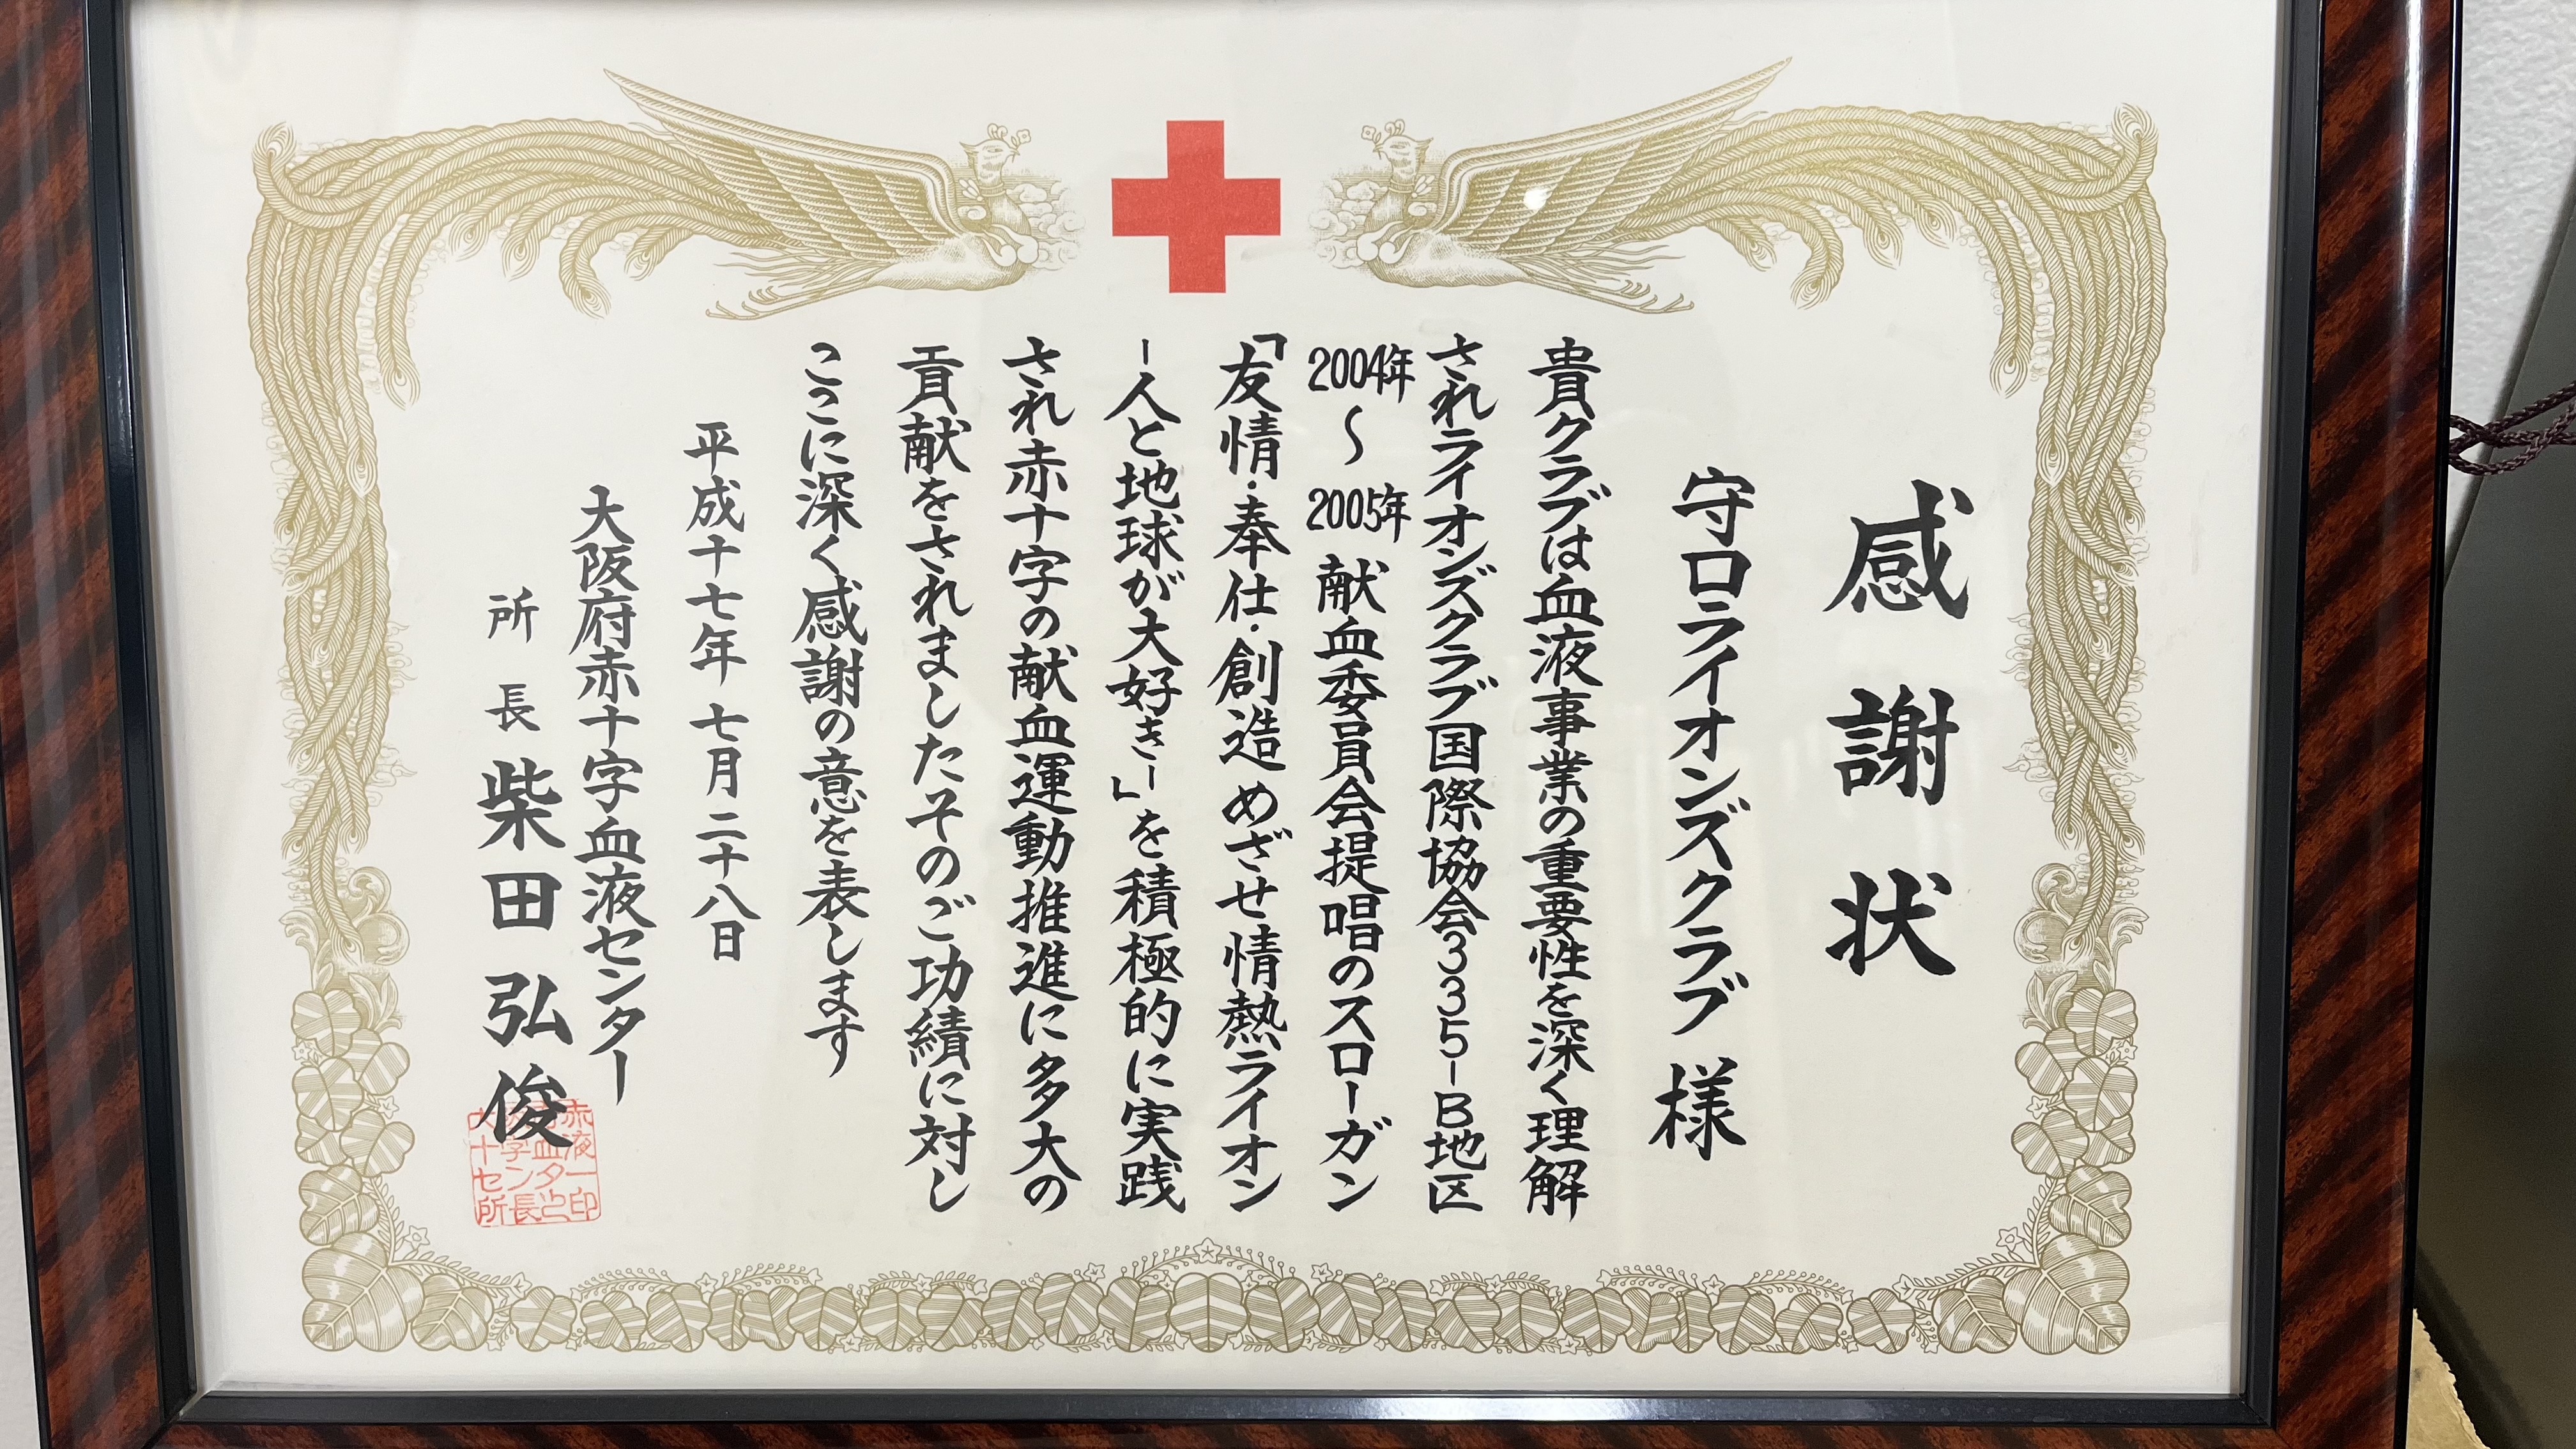 感謝状
守口ライオンズクラブ 様
貴クラブは血液事業の重要性を深く理解
されライオンズクラブ国際協会335-B地区
2004年～2005年献血委員会提唱のスローガン
「友情・奉仕・創造めざせ情熱ライオン
-人と地球が大好き-」を積極的に実践
され赤十字の献血運動推進に多大の
貢献をされましたそのご功績に対し
ここに深く感謝の意を表します
平成十七年七月二十八日
大阪府赤十字血液センター
所長 柴田弘俊